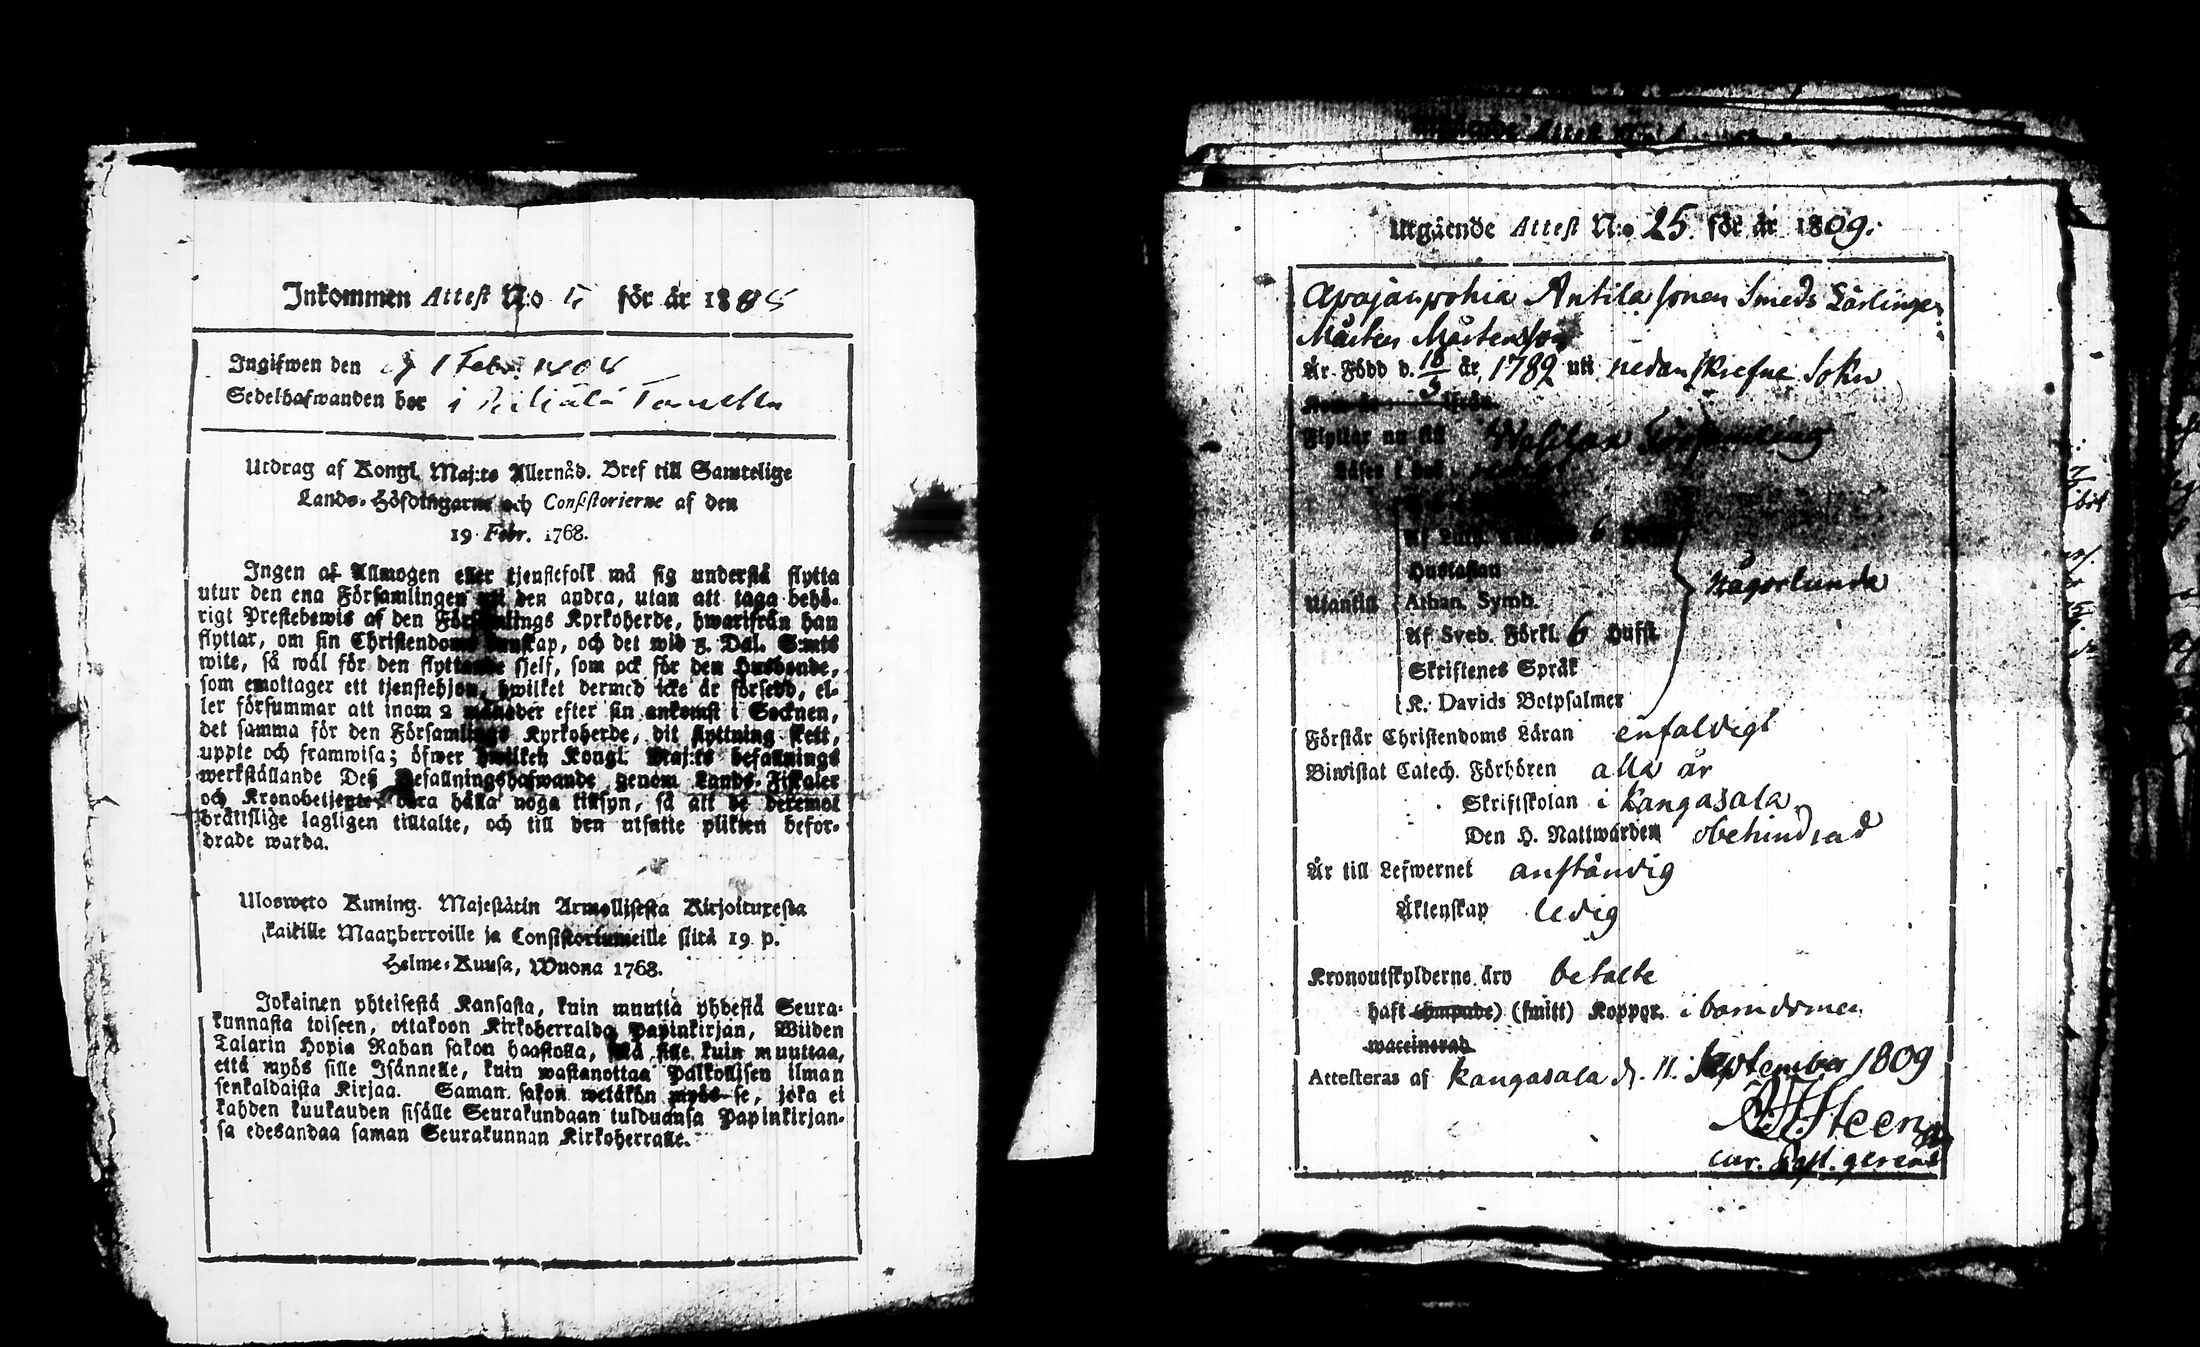 Inkommen Attest N:o 5 för år 18
Ingifwen den 1 Febr.
Sedelhafwanden bor i
Utdrag af Kongl. Maj:ts Allernåd. Bref till Samtelige
Lands-Höfdingarne och Consistorierne af den
19 Febr. 1768.
Ingen af Allmogen eller tjenstefolk må sig understå flytta
utur den ena Församlingen uti den andra, utan att taga behö-
rigt Prestebewis af den Församlings Kyrkoherde, hwarifrån han
flyttar, om sin Christendoms kunskap, och det wid 5. Dal. S:mts
wite, så wäl för den flyttande sjelf, som ock för den Husbonde,
som emottager ett tjenstehjon, hwilket dermed icke är försedd, el-
ler försummar att inom 2 månader efter sin ankomst i Socknen,
det samma för den Församlings Kyrkoherde, dit flyttning skett,
uppte och framwisa; öfwer hwilket Kongl. Maj:ts befallnings
werkställande Deß Befallningshafwande genom Lands-Fiskaler
och Kronobetjente böra hålla noga tillsyn, så att de deremot
brättslige lagligen tilltalte, och till den utsatte plikten befor-
drade warda.
Ulosweto Kuning. Majestätin Armollisesta Kirjoituxesta
kaikille Maanherroille ja Consistoriumeille siitä 19 p.
Helme-Kuusa, Wuona 1768.
Jokainen yhteisestä Kansasta, kuin muutta yhdestä Seura-
kunnasta toiseen, ottakoon Kirkoherralda Papinkirjan, Wiiden
Talarin Hopia Rahan sakon haastolla, sekä sille kuin muuttaa,
että myös sille Isännelle, kuin wastanottaa Palkollisen ilman
senkaldaista Kirjaa. Saman sakon wetäkön myös se, joka ei
kahden kuukauden sisälle Seurakundaan tulduansa Papinkirjan-
sa edesandaa saman Seurakunnan Kirkoherralle.
Utgående Attest N:o 25. för år 1809.
Antila sonen Smeds Lärlingen
Mårten Mårtensson
Är Född d. 18/3 år 1789 uti nedanskrefne Sokn
Flyttar nu till Församling
Läser i bok
Af Luth. Catech. 6 Huf
Hustaflan
Utantill Athan. Symb. någorlunda
Af Sveb. Förkl. 6 Hufst.
Skriftenes Språk
K. Davids Botpsalmer
Förstår Christendoms Läran enfaldigt
Biwistat Catech. Förhören alla år
Skriftskolan i Kangasala
Den H. Nattwarden obehindrad
Är till Lefwernet anständig
Äktenskap ledig
Kronoutskylderne äro betalte
haft (ympade) (smitt) Koppor i barndomen
waccinerad
Attesteras af Kangasala d. 11. September 1809
Steen
cur. Past. gerens